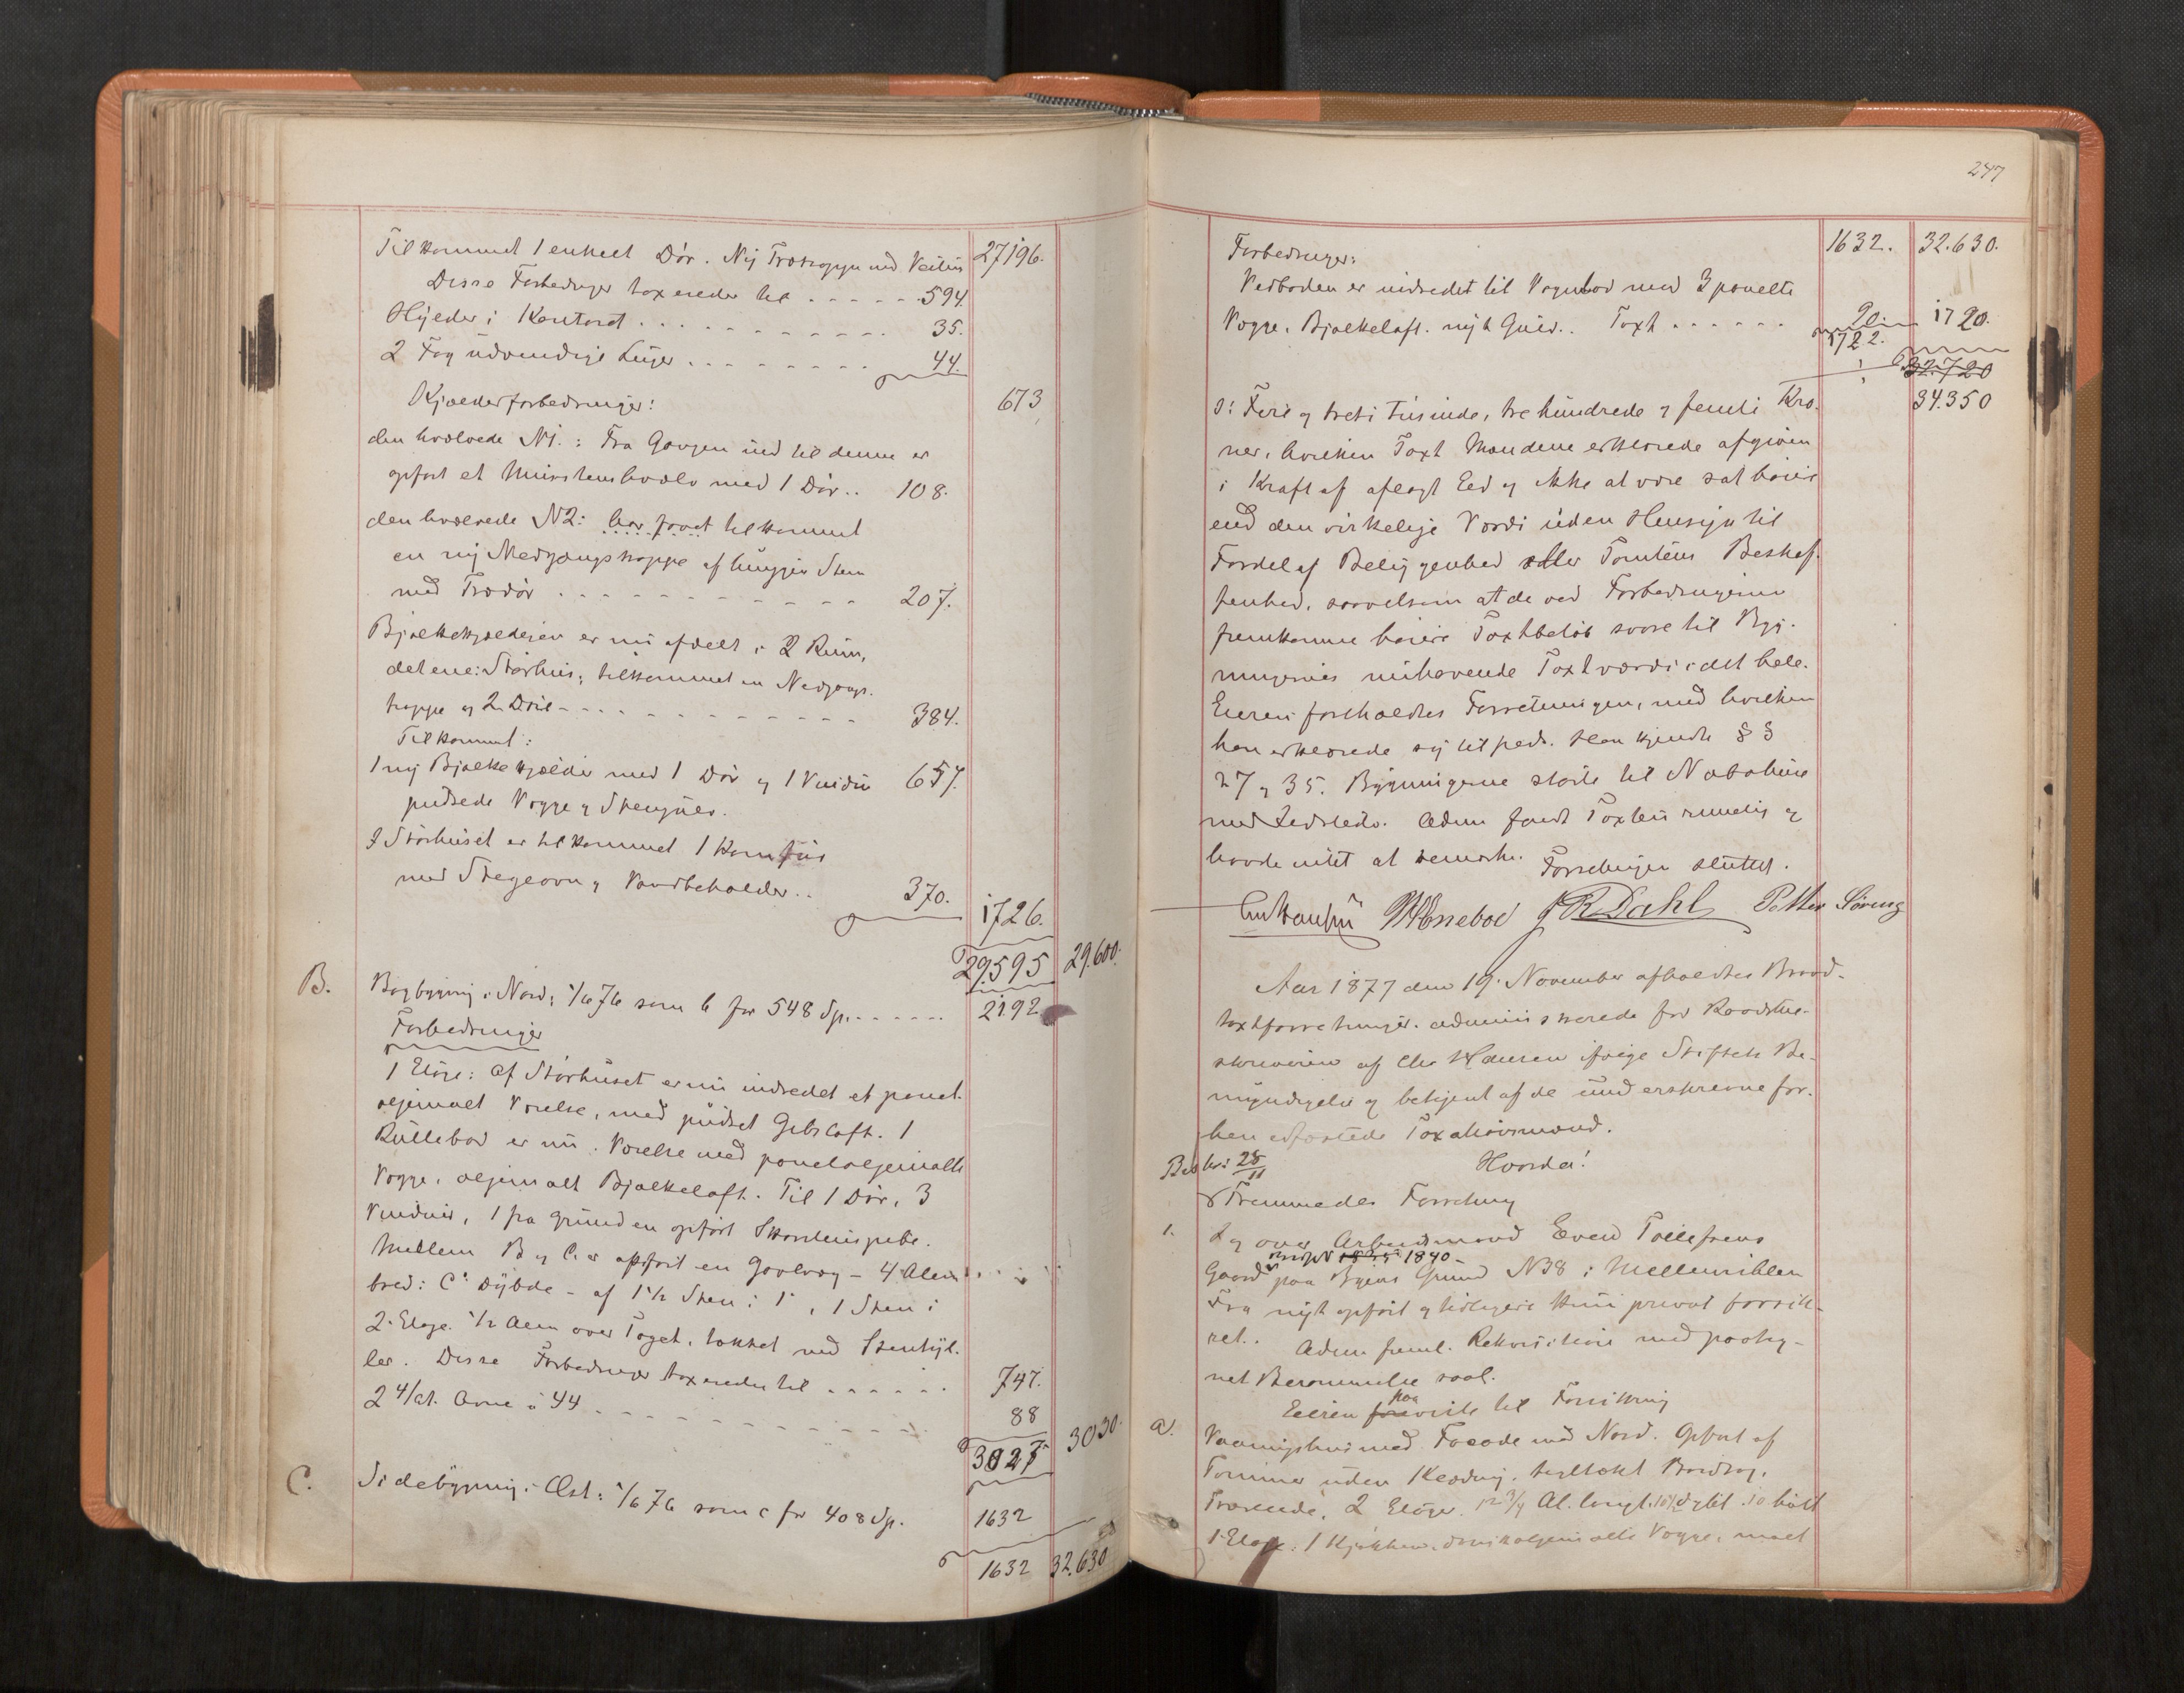 Tilkommet 1 enkelt Dör. Ny Trætrappe med 27196.
Disse Forbedringer taxeredes til 594.
Hylder i Kontoret 35.
2 Fag udvendige Luger 44.
673
Kjælderforbedringer:
den hvælvede N1.: Fra Gangen ind til denne er
opfört et Murstenshvælv med 1 Dör.. 108.
den hvælvede N2: har faaet tilkommet
en ny Nedgangstrappe af huggen Sten
med Trædör 207.
Bjælkekjælderen er nu afdelt i 2 Rum,
det ene: Störhus; tilkommet en Nedgangs-
trappe og 2 Döre 384.
Tilkommet:
1 ny Bjælkekjælder med 1 Dör og 1 Vindu 657.
pudsede Vægge og Stengulv.
I Störhuset er tilkommet 1 Komfur
med Stegeovn og Vandbeholder.. 370.
1726.
29595 29.600.
B. Bagbygning i Nord; 1/6 76 som b for 548 Sp. 2192
Forbedringer
1 Etage: Af Störhuset er nu indredet et panel.
oljemalt Værelse, med pudset Gibsloft. 1
Rullebod er nu Værelse med paneloljemalte
Vægge, oljemalt Bjælkeloft. Til 1 Dör, 3
Vinduer, 1 fra Grunden opfört Skorstenspibe.
Mellem B og C er opfört en Gavlvæg - 4 Alen
bred: C's Dybde - af 1 1/2 Sten i 1', 1 Sten i
2. Etage. 1/2 Alen over Taget, tækket med Stenhyl-
ler. Disse Forbedringer taxeredes til 747.
2 4/Et. Ovne à 44 88
3027 3030.
C. Sidebygning i Öst: 1/6 76 som c for 408 Sp. 1632
1632 32.630
247
1632. 32.630.
Forbedringer:
Vedboden er indredet til Vognbod med 3 panelte
Vægge, Bjælkeloft. nyt Gulv.. Taxt 90. 1720.
1722.
32.720
34.350
s: Fire og treti tusinde, tre hundrede og femti Kro-
ner, hvilken Taxt Mændene erklærede afgiven
i Kraft af aflagt Eed og ikke at være sat höiere
end den virkelige Værdi uden Hensyn til
Fordel af Beliggenhed eller Tomtens Beskaf-
fenhed, saavelsom at de ved Forbedringerne
fremkomne höiere Taxtbelöb svare til Byg-
ningernes nuhavende Taxtværdi i det hele.
Eieren foreholdtes Forretningen, med hvilken
han erklærede sig tilfreds. Han kjendte § §
27 og 35. Bygningerne stöde til Nabohuse
med Ildsteds. Adm fandt Taxten rimelig og
havde intet at bemærke. Forretningen sluttet.
J R Dahl Petter Söreng
Aar 1877 den 19. November afholdtes Brand-
taxtforretninger. administrerede for Raadstue-
skriveren af Chr Hansen ifölge Stiftets Be-
myndigelse og betjent af de underskrevne for-
hen edfæstede Taxationsmænd.
Hvorda!
Besk: 28/11
Fremmedes Forretning
1. Lg over Arbeidsmand Even Tollefsens
Gaard matr N 1835 1840 paa Byens Grund N38 i Mellemiblen
Fra nyt opfört og tidligere kun privat forsik-
ret. Adm freml. Rekvisition med paateg-
net Berammelse saal.
Eieren fore paaviste til Forsikring
a. Vaaningshus med Facade mod Nord. Opfört af
Tömmer uden Klædning. tegltækt Bordtag.
Trærende, 2 Etager, 12 3/4 Al. langt. 10 1/2 dybt. 10 höit
1 Etage: 1 Kjökken. oljemalte Vægge, malt